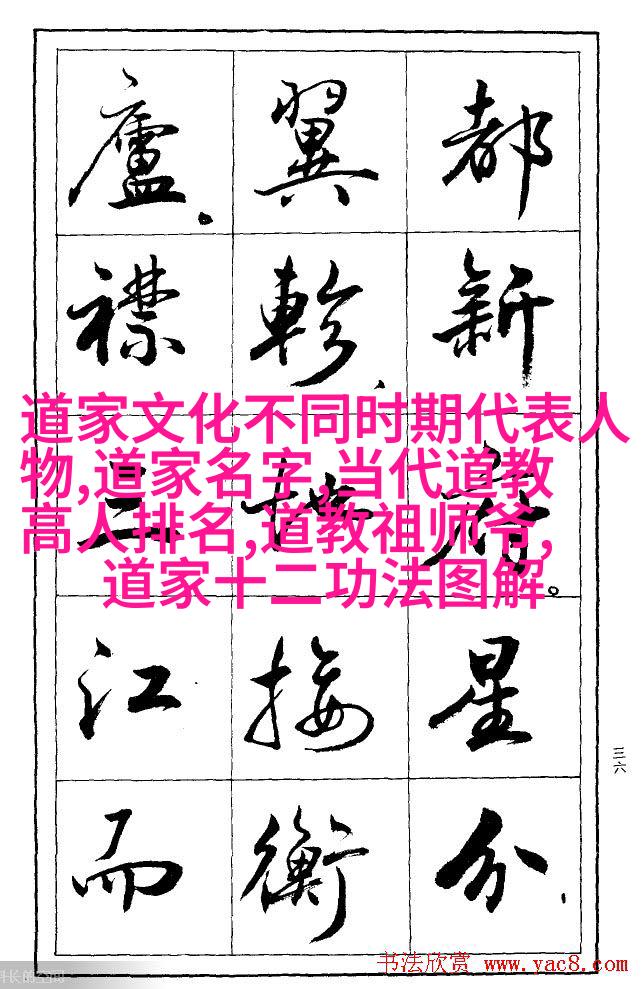 都新府。星分、
翼軫、地接衡
廬。襟三江而
道家文化不同时期代表人
物,道家名字,当代道教
高人排名,道教祖师爷,
道家十二功法图解
三六
长的空间
书法欣赏 www.yac8.com